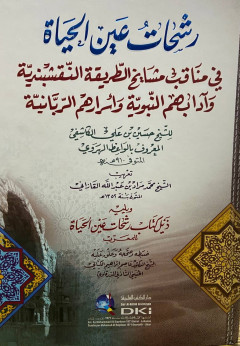 رشحات عين الحياة
في مناقب مشايخ الطريقة النقشبندية
وآدابهم النبوية وأسرارهم الربانية
للشيخ حسين بن علي الكاشفي
المعروف بالواعظ الهروي
المتوفى ٩١٠ هـ
تعريب
الشيخ محمد مراد بن عبد الله القازاني
المتوفى سنة ١٣٥٢ هـ
ويليه
ذيل كتاب رشحات عين الحياة
للمعرب
ضبطه وصححه وعلق عليه
دار الكتب العلمية
DKi